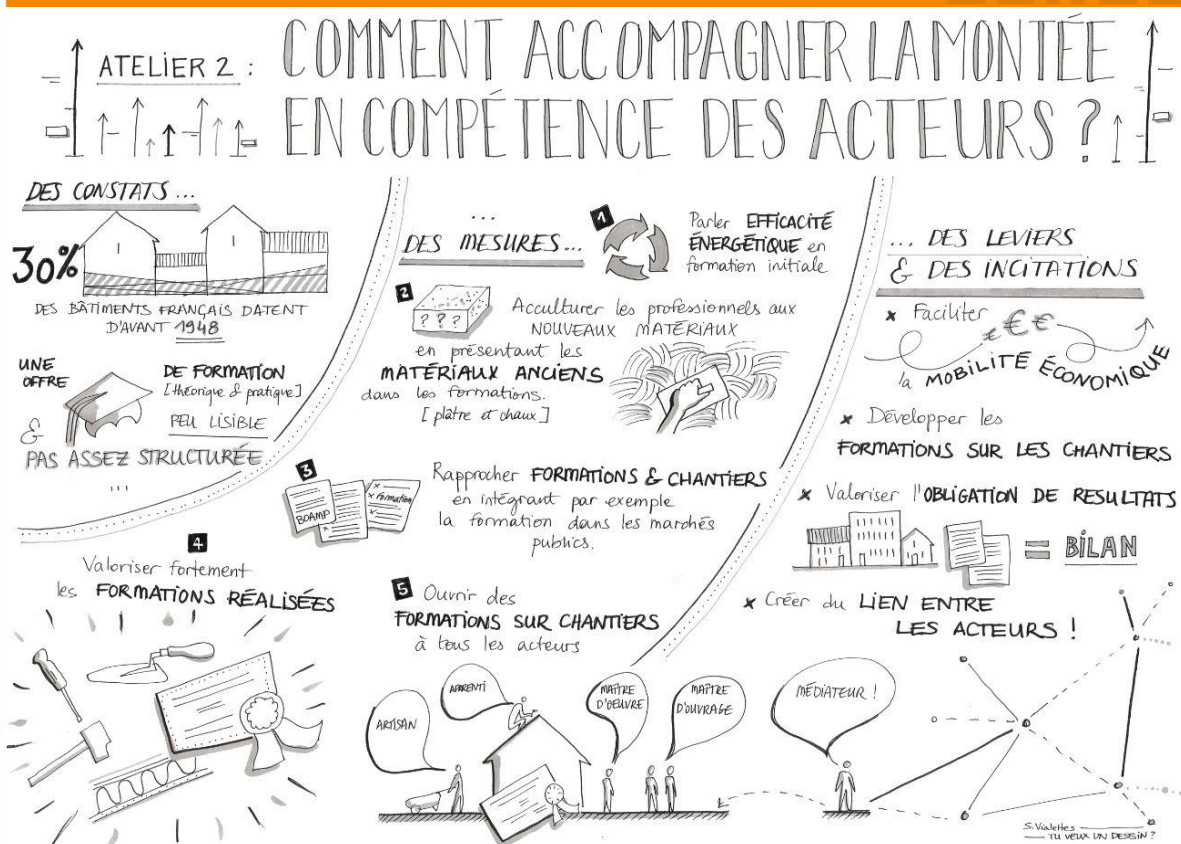 ATELIER 2 :
COMMENT ACCOMPAGNER LA MONTÉE
EN COMPÉTENCE DES ACTEURS ?
DES CONSTATS ...
30%
DES BÂTIMENTS FRANÇAIS DATENT
D'AVANT 1948
UNE
OFFRE
DE FORMATION
[théorique & pratique]
PEU LISIBLE
&
PAS ASSEZ STRUCTURÉE
...
...
DES MESURES...
1
Parler EFFICACITÉ
ÉNERGÉTIQUE en
formation initiale
2
? ? ?
Acculturer les professionnels aux
NOUVEAUX MATÉRIAUX
en présentant les
MATÉRIAUX ANCIENS
dans les formations.
[plâtre et chaux]
3
BOAMP
Formation
Rapprocher FORMATIONS & CHANTIERS
en intégrant par exemple
la formation dans les marchés
publics.
4
Valoriser fortement
les FORMATIONS RÉALISÉES
5 Ouvrir des
FORMATIONS SUR CHANTIERS
à tous les acteurs
ARTISAN
APPRENTI
MAÎTRE
D'OEUVRE
MAÎTRE
D'OUVRAGE
MÉDIATEUR !
... DES LEVIERS
& DES INCITATIONS
x Faciliter
€ € €
la MOBILITÉ ÉCONOMIQUE
x Développer les
FORMATIONS SUR LES CHANTIERS
x Valoriser l'OBLIGATION DE RESULTATS
= BILAN
x Créer du LIEN ENTRE
LES ACTEURS !
S. Vialettes
TU VEUX UN DESSIN ?